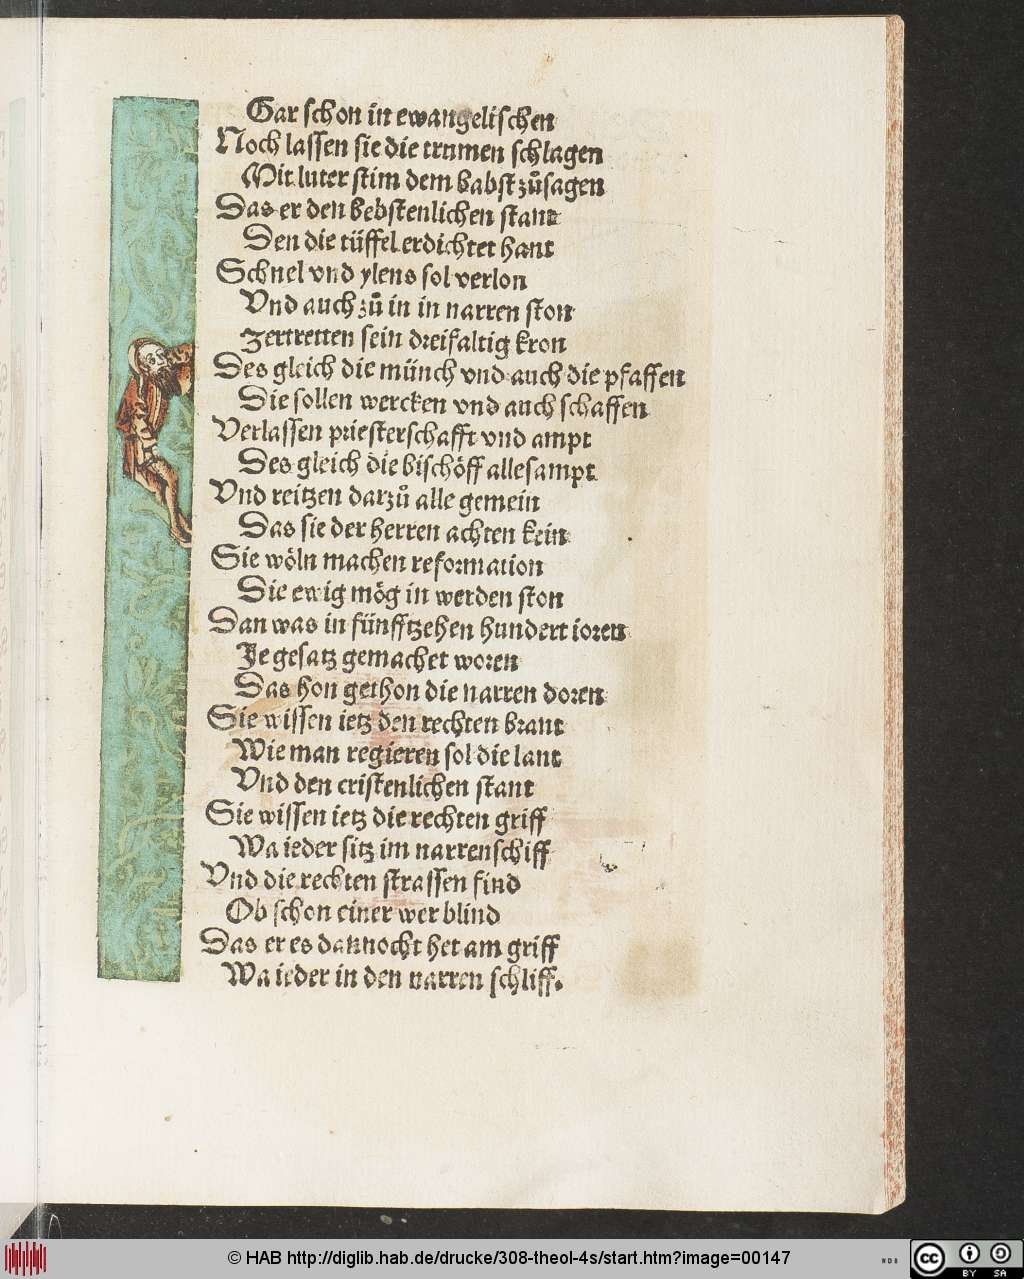 Gar schon in ewangelischen
Noch lassen sie die trumen schlagen
Mit luter stim dem babst zůsagen
Das er den bebstenlichen stant
Den die tüffel erdichtet hant
Schnel vnd ylens sol verlon
Vnd auch zů in in narren ston
Zertretten sein dreifaltig kron
Des gleich die münch vnd auch die pfaffen
Die sollen wercken vnd auch schaffen
Verlassen priesterschafft vnd ampt
Des gleich die bischöff allesampt
Vnd reitzen darzů alle gemein
Das sie der herren achten kein
Sie wöln machen reformation
Die ewig mög in werden ston
Dan was in fünfftzehen hundert ioren
Je gesatz gemachet woren
Das hon gethon die narren doren
Sie wissen ietz den rechten brant
Wie man regieren sol die lant
Vnd den cristenlichen stant
Sie wissen ietz die rechten griff
Wa ieder sitz im narrenschiff
Vnd die rechten strassen find
Ob schon einer wer blind
Das er es dannocht het am griff
Wa ieder in den narren schliff.
© HAB http://diglib.hab.de/drucke/308-theol-4s/start.htm?image=00147
WDB
cc BY SA